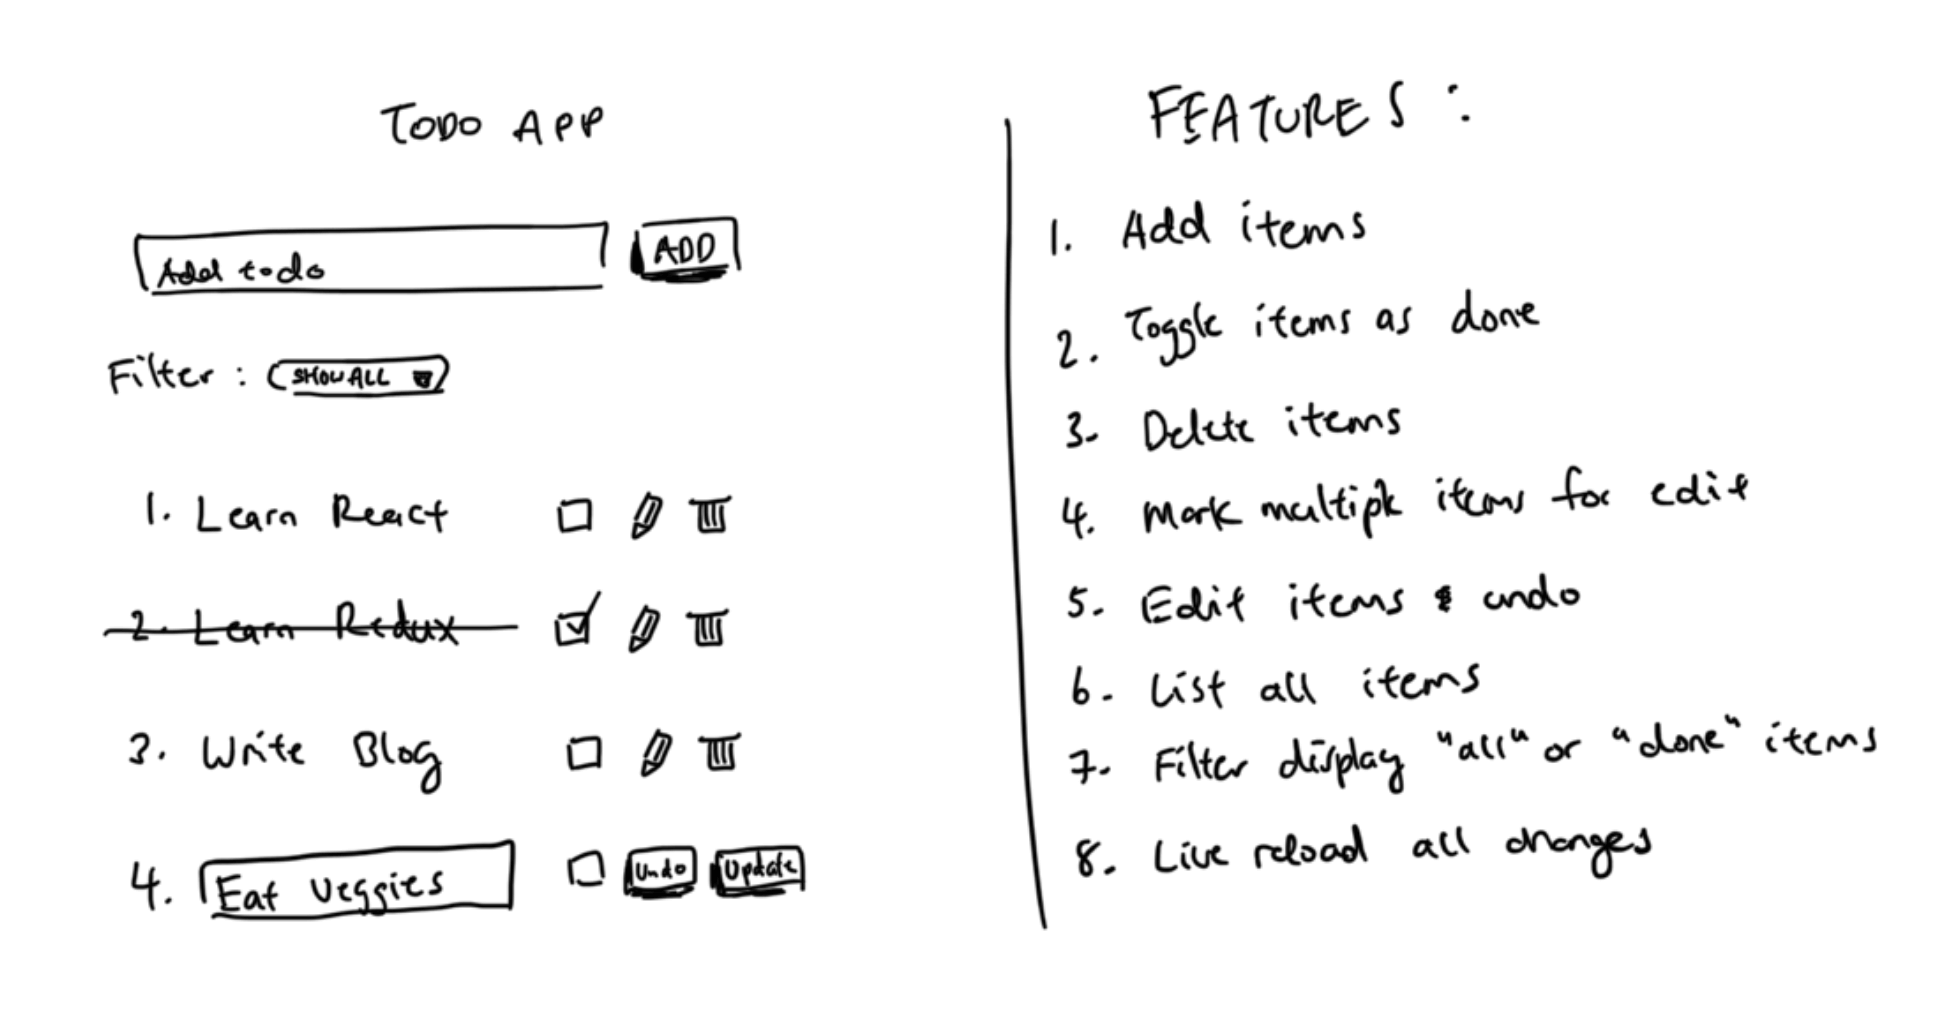 TODO APP
Add todo
ADD
Filter : SHOW ALL
1. Learn React
2. Learn Redux
3. Write Blog
4. Eat Veggies Undo Update
FEATURES :
1. Add items
2. Toggle items as done
3. Delete items
4. Mark multiple items for edit
5. Edit items & undo
6. List all items
7. Filter display "all" or "done" items
8. Live reload all changes